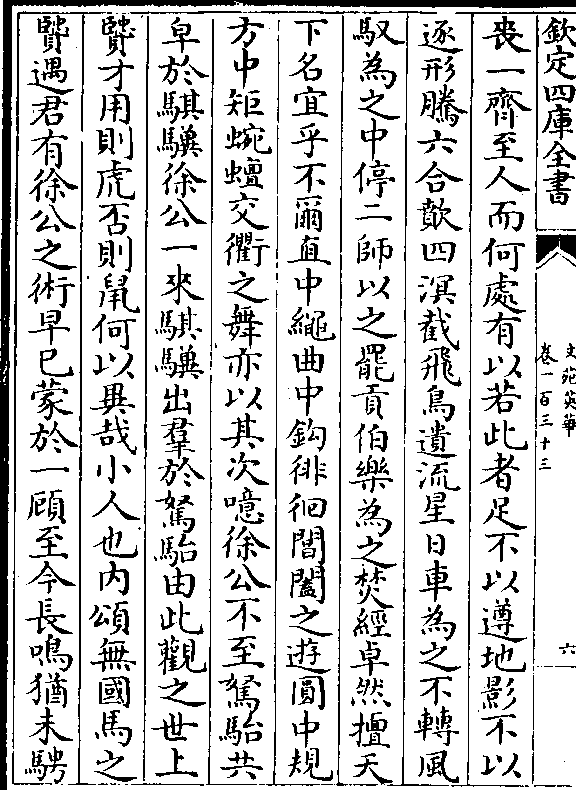 欽定四庫全書
文苑英華
卷一百三十三
六
喪一齊至人而何處有以若此者足不以遵地影不以
逐形騰六合歕四溟截飛鳥遺流星日車為之不轉風
馭為之中停二師以之罷貢伯樂為之焚經卓然擅天
下名宜乎不爾直中繩曲中鈎徘徊閶闔之遊圓中規
方中矩蜿蟺交衢之舞亦以其次噫徐公不至駑駘共
皁於騏驥徐公一來騏驥出羣於駑駘由此觀之世上
賢才用則虎否則鼠何以異哉小人也内頌無國馬之
賢遇君有徐公之術早已蒙於一顧至今長鳴猶未騁